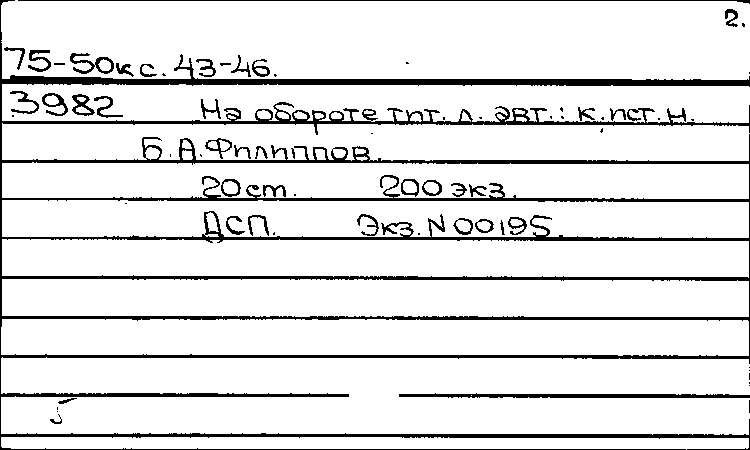 2.
75-50кс. 43-46.
3982 На обороте тит. л. авт.: к.ист.н.
Б.А.Филиппов.
20 cm. 200 экз.
ДСП. Экз. N 00195.
5